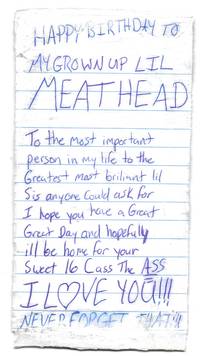 HAPPY BIRTHDAY TO
MY GROWN UP LIL
MEATHEAD
To the most important
person in my life to the
Greatest most briliant lil
Sis anyone could ask for
I hope you have a Great
Great Day and hopefully
ill be home for your
Sweet 16 Cass The ASS
I L♡VE YOU!!!
NEVER FORGET THAT!!!